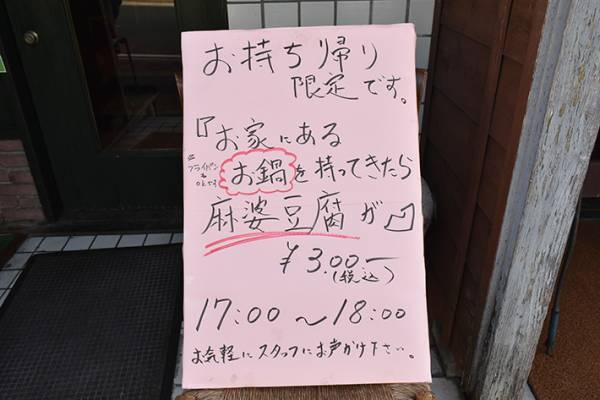 お持ち帰り
限定です。
『お家にある
フライパンも
OKです
お鍋を持ってきたら
麻婆豆腐が
¥300-
(税込)
17:00～18:00
お気軽にスタッフにお声かけ下さい。